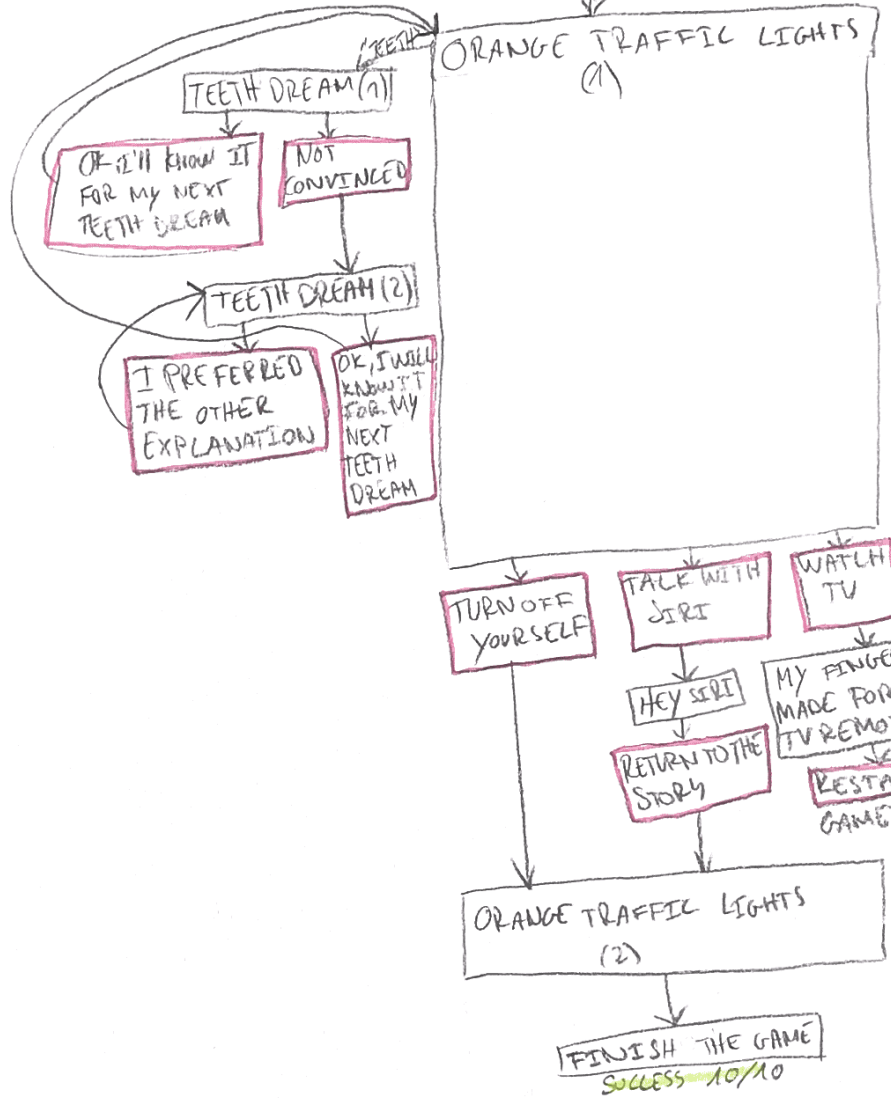 TEETH
ORANGE TRAFFIC LIGHTS
(1)
TEETH DREAM (1)
OK I'll KNOW IT
FOR MY NEXT
TEETH DREAM
NOT
CONVINCED
TEETH DREAM (2)
I PREFERRED
THE OTHER
EXPLANATION
OK, I WILL
KNOW IT
FOR MY
NEXT
TEETH
DREAM
TURN OFF
YOURSELF
TALK WITH
SIRI
WATCH
TV
HEY SIRI
MY FINGE
MADE FOR
TV REMO
RETURN TO THE
STORY
RESTA
GAME
ORANGE TRAFFIC LIGHTS
(2)
FINISH THE GAME
SUCCESS 10/10